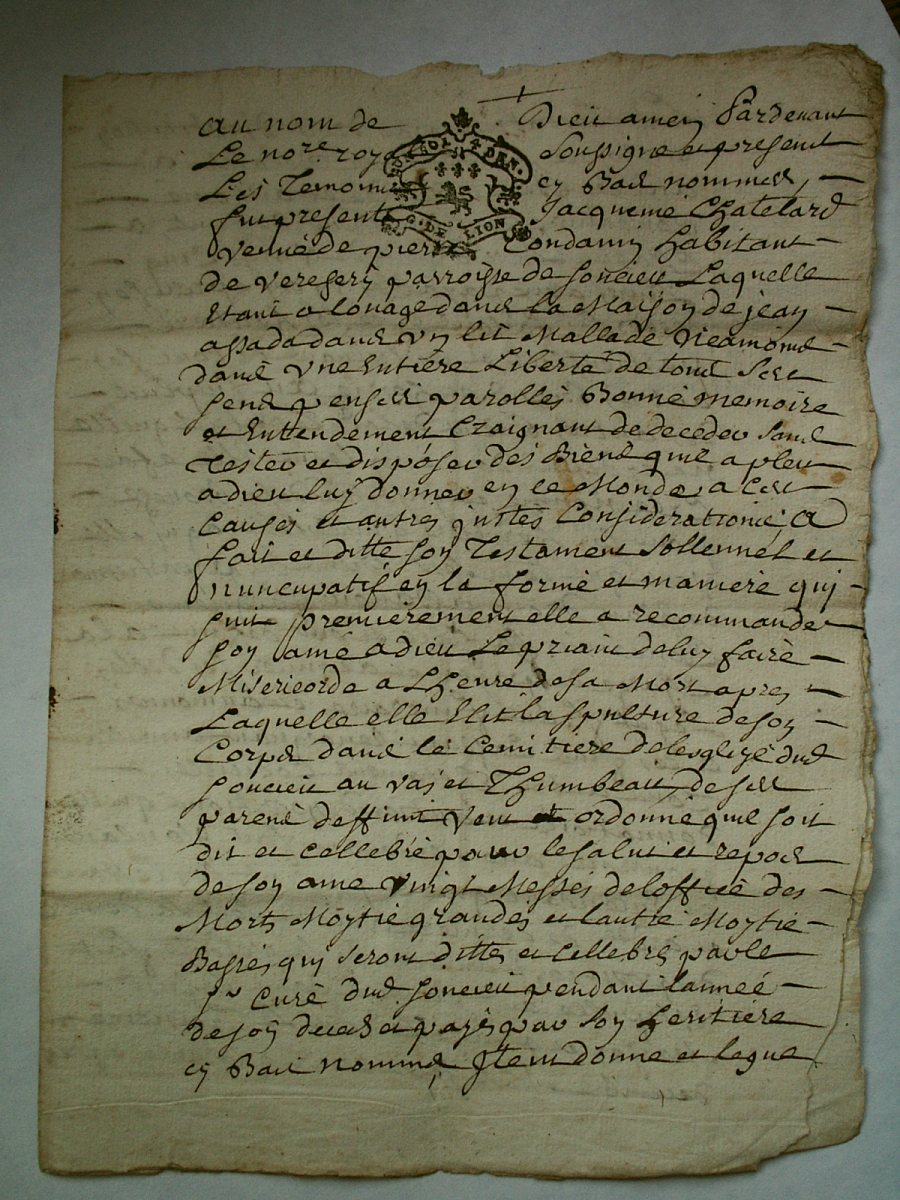 au nom de Dieu amen Pardevant
Le no.re roya Soussigné et present
Les Temoins cy Bas nommes,
fut presente Jacqueme Chatelard
G. DE LION
veuve de pierre Condamin habitant
de verefery parroisse de soucieu Laquelle
Etant a louage dans la Maison de jean
assada dans un lit Mallade Neamoins
dans une Entiere Liberté de tous Ses
sens pensees parolles Bonne memoire
et Entendement Craignant de deceder sans
Tester et disposer des Biens quil a pleu
a dieu luy donner en ce Monde a Ces
Causes et autres justes Considerations, A
fait et ditte son Testament sollennel et
nuncupatif en la forme et maniere qui
suit premierement elle a recommande
son ame a dieu Le priant de luy faire
Misericorde a Lheure de sa Mort apres
Laquelle elle Elit la spulture de son
Corps dans le Cemitiere de lesglize dud
soucieu au vas et Thumbeau de ses
parens deffunt Veut et ordonne quil soit
dit et cellebré pour le salut et repos
de son ame vingt Messes de loffice des
Morts Moytie grandes et lautre Moytie
Basses qui seront dittes et cellebres par le
sr Curé dud soucieu pendant lanneé
de son deces et payes par son heritiere
cy Bas nommé Item donne et legue